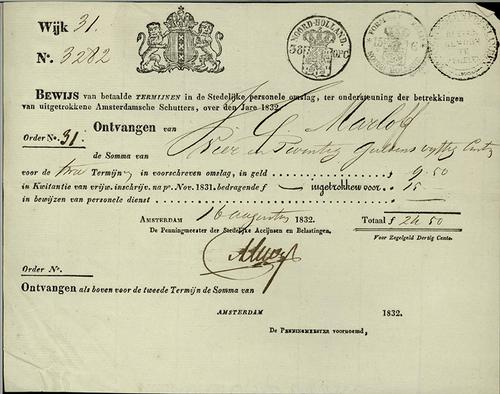 Wijk 31.
NOORD-HOLLAND.
No. 3282
BEWIJS van betaalde TERMIJNEN in de Stedelijke personele omslag, ter ondersteuning der betrekkingen
van uitgetrokkene Amsterdamsche Schutters, over den Jare 1832.
Order No. 31. Ontvangen van J. G. Marlof
de Somma van Vier en Twintig Guldens vyftig Cents
voor de twee Termijn in voorschreven omslag, in geld f 9.50
in Kwitantie van vrijw. inschrijv. na po. Nov. 1831. bedragende f ingetrokken voor 15
in bewijzen van personele dienst
AMSTERDAM 16 augustus 1832. Totaal f 24.50
De Penningmeester der Stedelijke Accijnsen en Belastingen. Voor Zegelgeld Dertig Cents.
Order No.
Ontvangen als boven voor de tweede Termijn de Somma van
AMSTERDAM 1832.
De PENNINGMEESTER voornoemd,